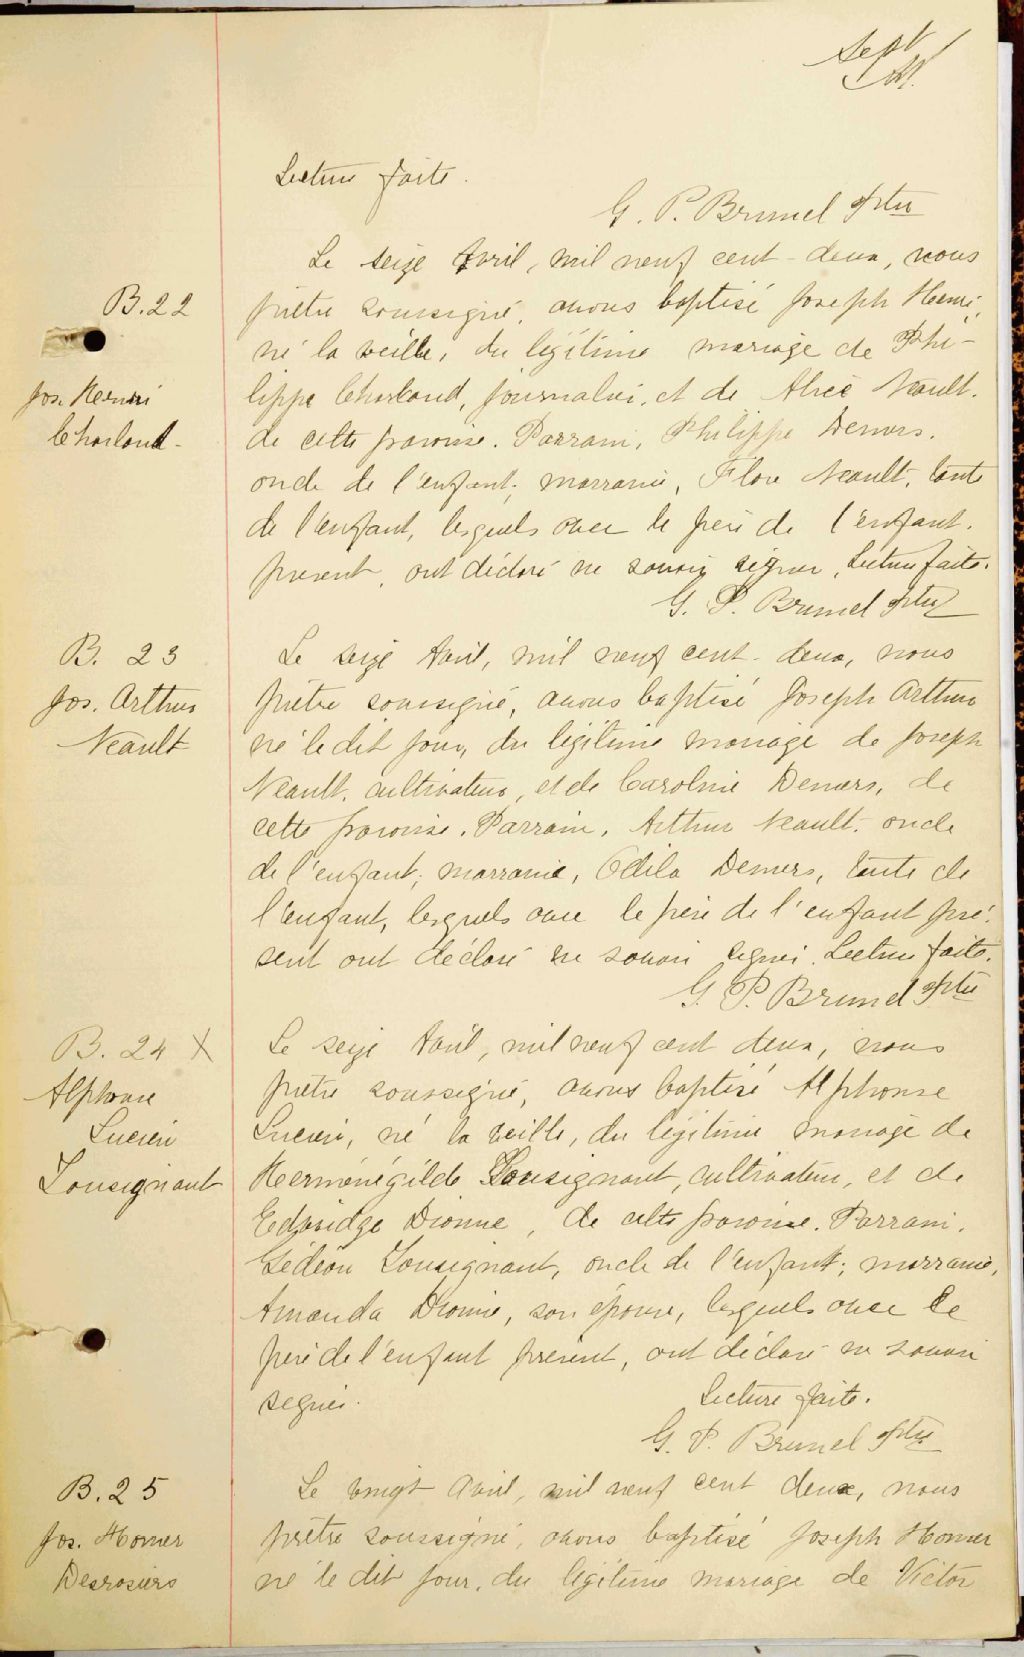 Sept
Lecture faite.
G. P. Brunel Ptre
Le seize Avril, mil neuf cent-deux, nous
B.22
prêtre soussigné, avons baptisé Joseph Henri,
né la veille, du légitime mariage de Phi-
Jos. Henri
lippe Charland, journalier, et de Alice Neault.
Charland
de cette paroisse. Parrain, Philippe Demers.
oncle de l'enfant; marraine, Flore Neault, tante
de l'enfant, lesquels avec le père de l'enfant.
present, ont déclaré ne savoir signer, Lecture faite.
G. P. Brunel Ptre
B. 23
Le seize Avril, mil neuf cent-deux, nous
Jos. Arthur
prêtre soussigné, avons baptisé Joseph Arthur
Neault
né le dit jour, du légitime mariage de Joseph
Neault, cultivateur, et de Caroline Demers, de
cette paroisse. Parrain, Arthur Neault, oncle
de l'enfant; marraine, Odila Demers, tante de
l'enfant, lesquels avec le père de l'enfant pré-
sent ont déclaré ne savoir signer. Lecture faite.
G. P. Brunel Ptre
B. 24 X
Le seize Avril, mil neuf cent deux, nous
Alphonse
prêtre soussigné, avons baptisé Alphonse
Lucien
Lucien, né la veille, du légitime mariage de
Lousignant
Herménégilde Lousignant, cultivateur, et de
Edwidge Dionne, de cette paroisse. Parrain,
Gédéon Lousignant, oncle de l'enfant; marraine,
Amanda Dionne, son épouse, lesquels avec le
père de l'enfant présent, ont déclaré ne savoir
signer. Lecture faite.
G. P. Brunel Ptre
B. 25
Le vingt Avril, mil neuf cent deux, nous
Jos. Homer
prêtre soussigné, avons baptisé Joseph Homer
Desrosiers
né le dit jour, du légitime mariage de Victor